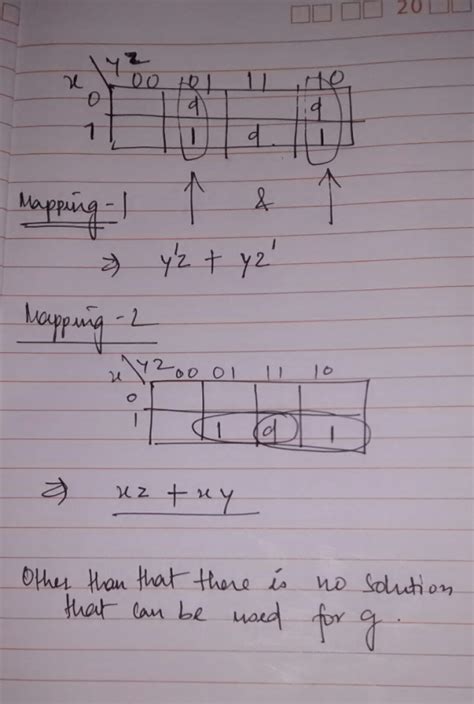 20
yz
x 00 01 11 10
0 d d
1 1 d 1
Mapping-1 &
⇒ y'z + yz'
Mapping-2
x yz 00 01 11 10
0
1 1 d 1
⇒ xz + xy
Other than that there is no solution
that can be used for g.